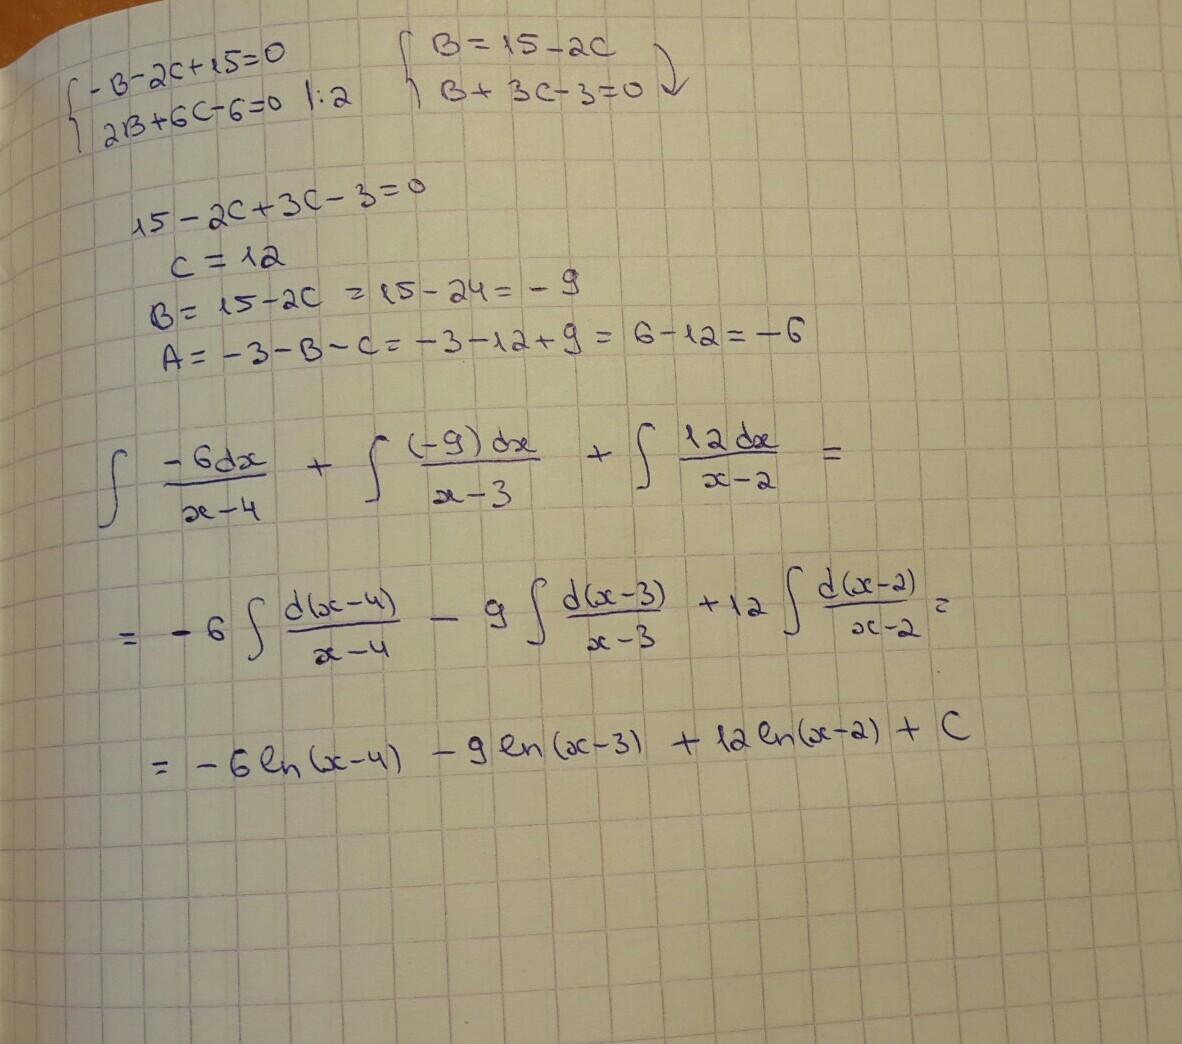 { -B-2C+15=0 { B=15-2C
2B+6C-6=0 |:2 B+3C-3=0
15-2C+3C-3=0
C=12
B=15-2C=15-24=-9
A=-3-B-C=-3-12+9=6-12=-6
∫ -6dx/(x-4) + ∫ (-9)dx/(x-3) + ∫ 12dx/(x-2) =
= -6∫ d(x-4)/(x-4) - 9∫ d(x-3)/(x-3) +12∫ d(x-2)/(x-2) =
= -6ln(x-4) -9ln(x-3) +12ln(x-2)+C